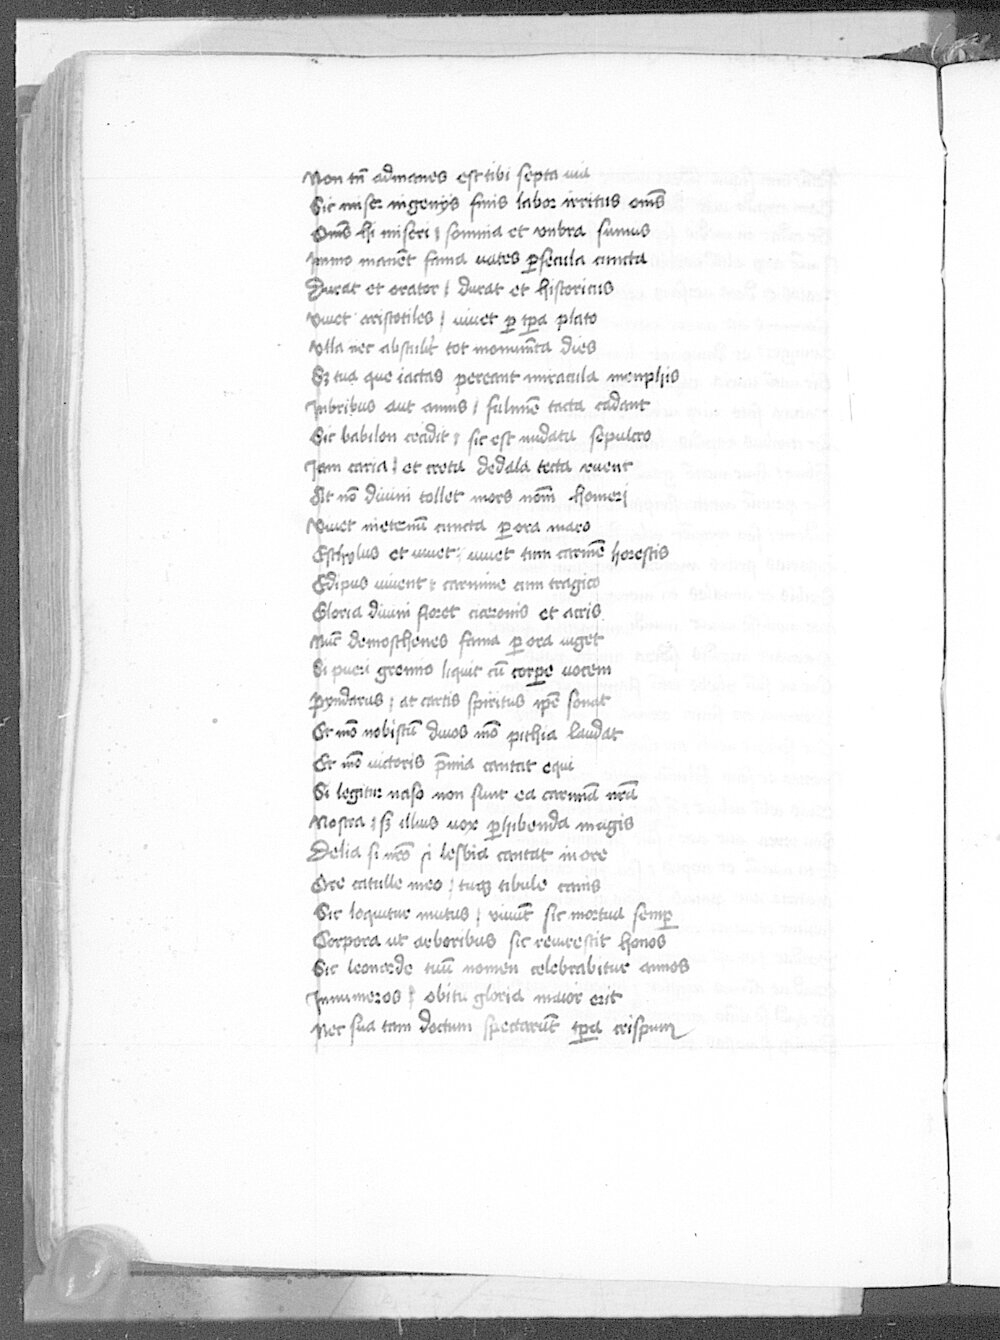 Non tn̄ ad manes est tibi septa uia
Sic miser ingenijs finis labor irritus om̄s
Om̄s hi miseri / somnia et vmbra sumus
Immo manēt fama uates p̱ secula cuncta
Durat et orator / durat et historicus
Viuet aristotiles / uiuet p̱ tp̱a plato
Vlla nec abstulit tot monumēta dies
Sꝫ tua que iactas pereant miracula menphis
Imbribus aut annis / fulmīe tacta cadant
Sic babilon cecidit / sic est nudata sepulcro
Iam caria / et creta dedala tecta ruent
At nō diuini tollet mors nomē homeri
Viuet meternū cuncta p̱ ora maro
Eschylus et uiuet / uiuet tum carmē horestis
Edipus uiuent / carmine cum tragico
Gloria diuini floret ciceronis et acris
Nūc demosthenes fama p̱ ora uiget
Si pueri gremio liquit cū corpe uocem
Pyndarus / at cartis spiritus ip̄e sonat
Et mō nobiscū diuos mō pithia laudat
Et mō uictoris p̄mia cantat equi
Si legitur naso non sunt ea carmīa nr̄a
Nostra / sꝫ illius uox p̱hibenda magis
Delia si nr̄o si lesbia cantat in ore
Ore catulle meo / tuqꝫ tibule canis
Sic loquitur mutus / viuūt sic mortua semp̱
Corpora ut arboribus sic reuirescit honos
Sic leonarde tuū nomen celebrabitur annos
Innumeros / obitu gloria maior erit
Nec sua tam doctum spectarūt tp̱a crispum